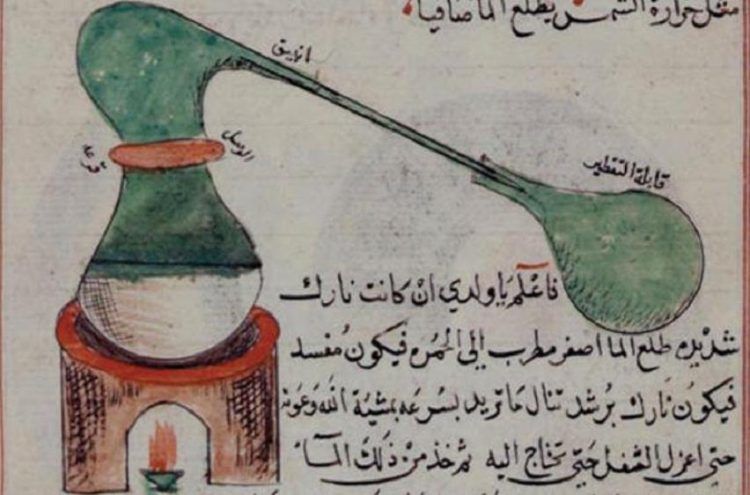 مثل حرارة الشمس يطلع الما صافيا
انبيق
الوصل
قرعة
قابلة التقطير
فاعلم يا ولدي ان كانت نارك
شديده طلع الما اصفر مطرب الي الحمره فيكون مفسد
فيكون نارك برشد تنال ما تريد بسرعه بمشية الله وعونه
حتى اعزل الثفل حتى تحتاج اليه ثم خذ من ذلك المآ